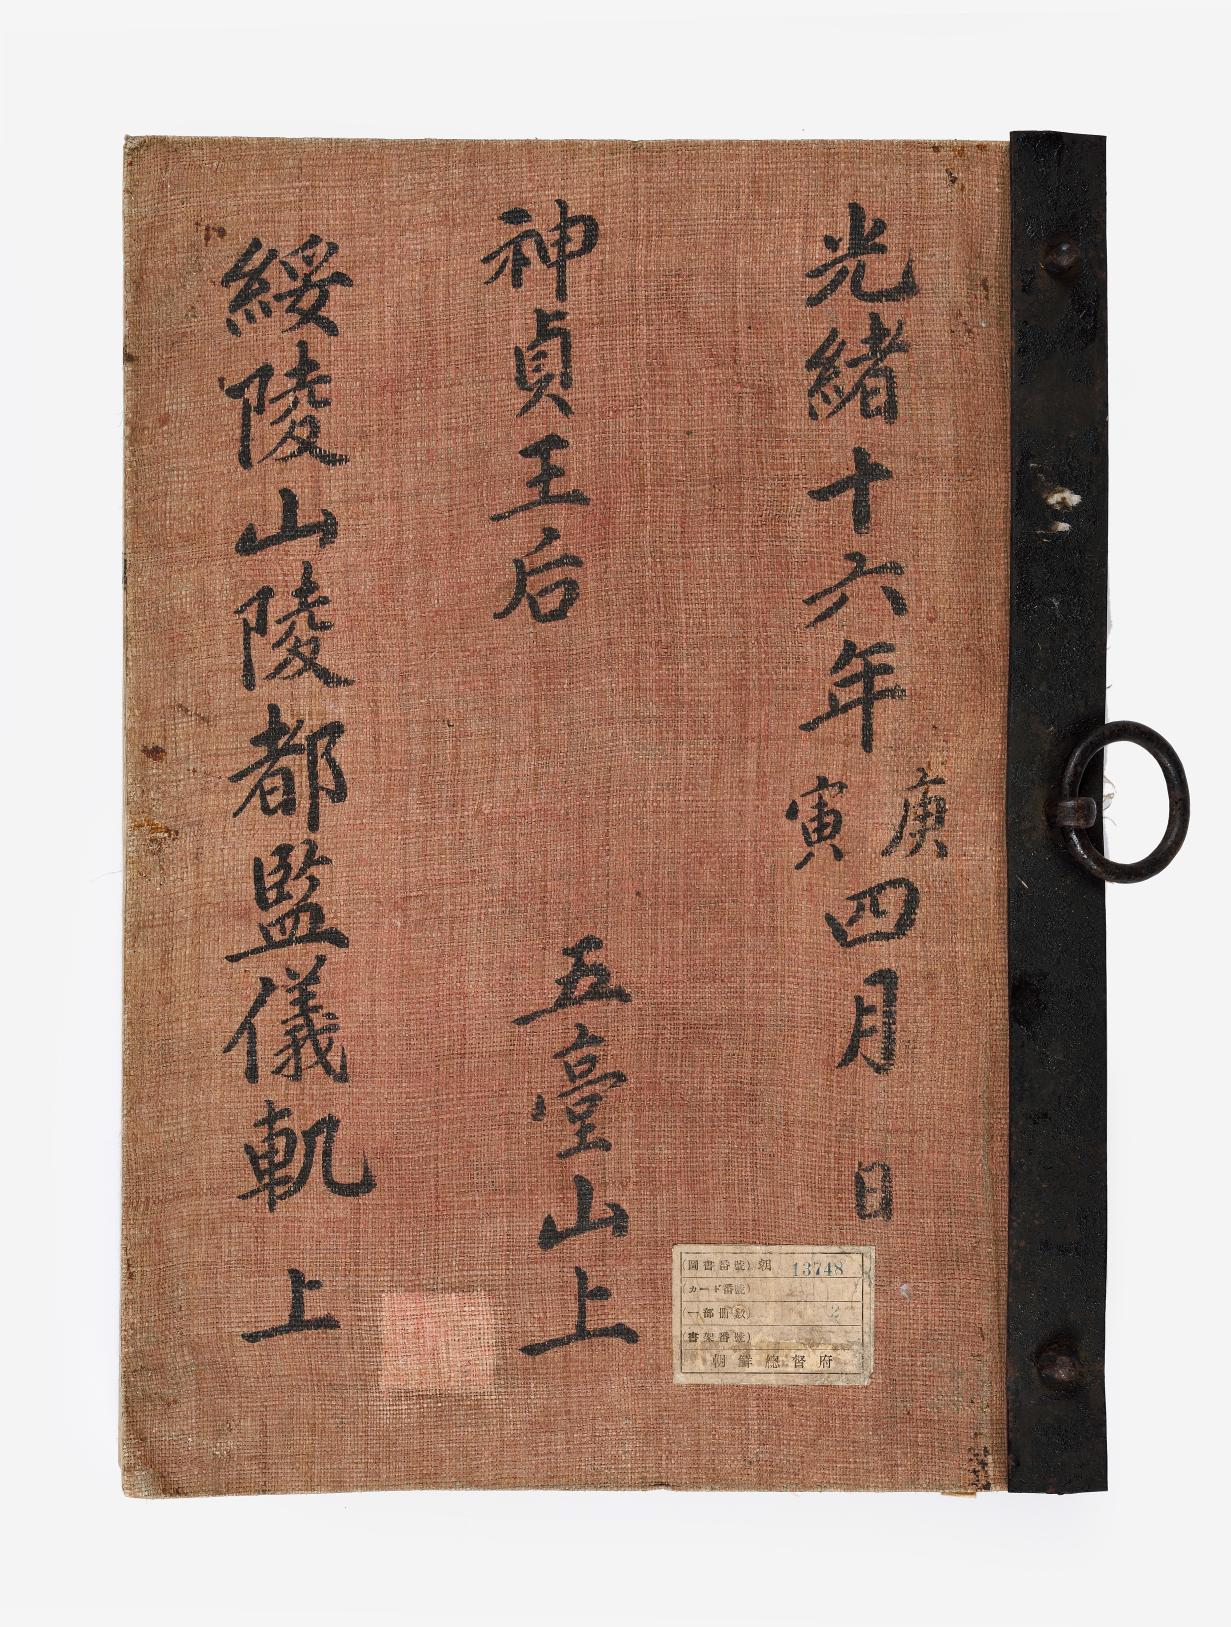 光緖十六年庚寅四月 日
神貞王后 五臺山上
綏陵山陵都監儀軌 上
(圖書番號) 朝 13748
(カード番號)
(一部冊數) 2
(書架番號)
朝鮮總督府